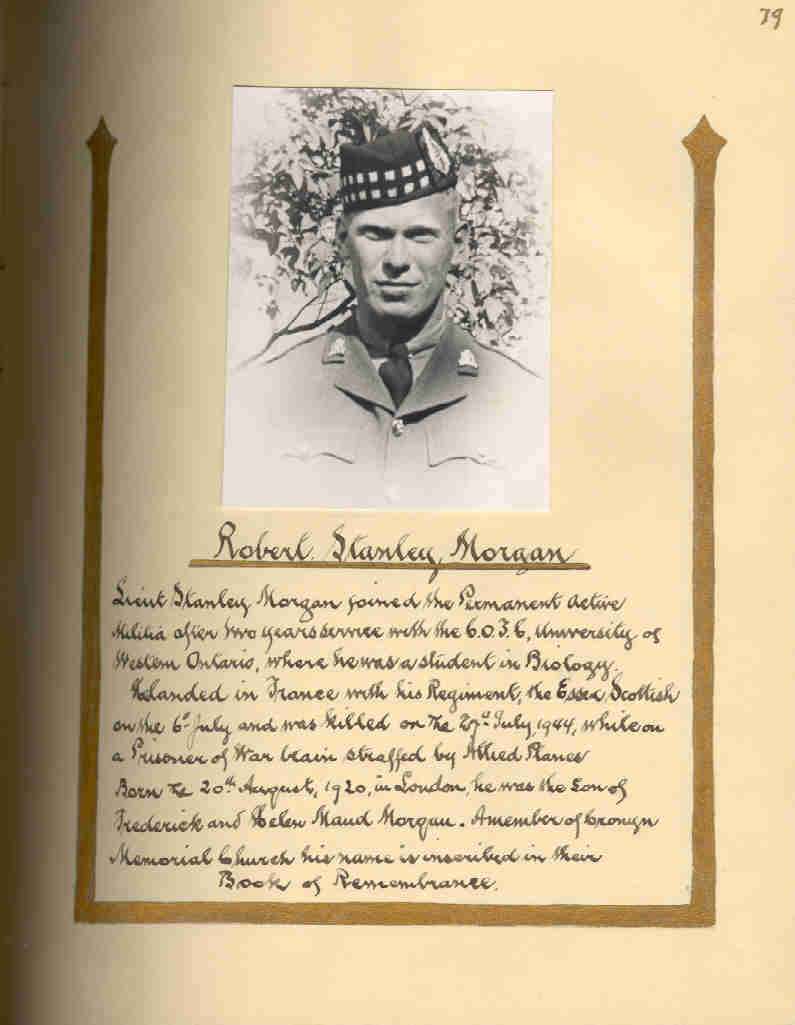 79
Robert Stanley Morgan
Lieut Stanley Morgan joined the Permanent Active
Militia after two years service with the C.O.T.C, University of
Western Ontario, where he was a student in Biology.
He landed in France with his Regiment, the Essex Scottish
on the 6th July and was killed on the 27th July, 1944, while on
a Prisoner of War train straffed by Allied Planes
Born the 20th August, 1920, in London, he was the Son of
Frederick and Helen Maud Morgan. A member of Cronyn
Memorial Church his name is inscribed in their
Book of Remembrance.